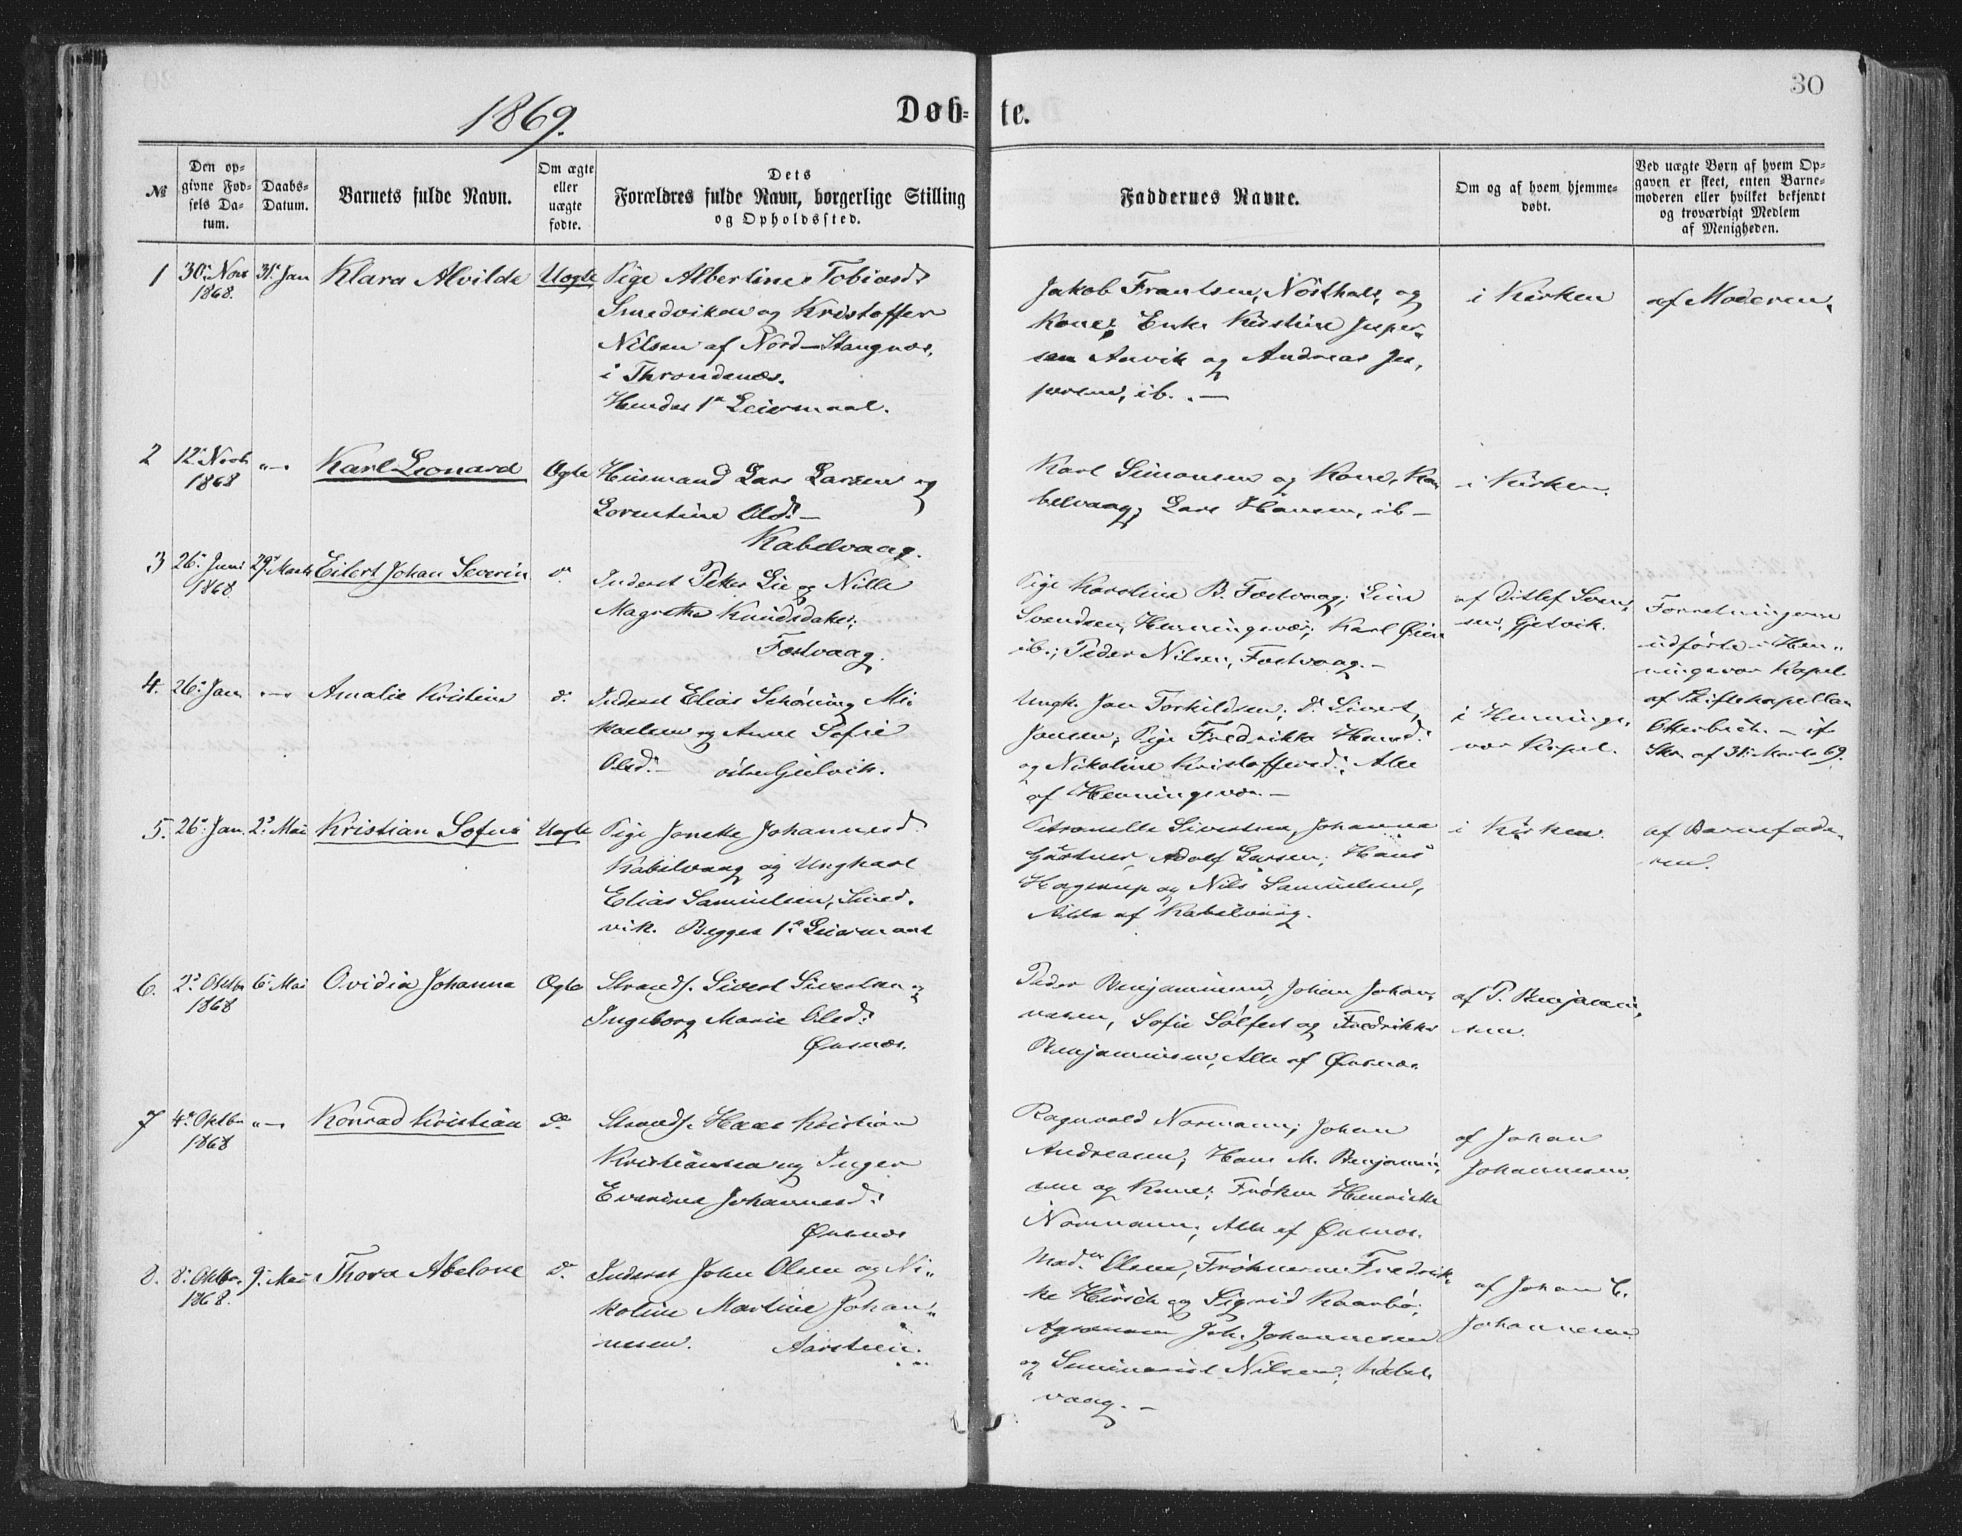 30
1869.
Døbte.
№
Den opgivne Fødsels Datum.
Daabs-Datum.
Barnets fulde Navn.
Om ægte eller uægte fødte.
Dets Forældres fulde Navn, borgerlige Stilling og Opholdssted.
Faddernes Navne.
Om og af hvem hjemmedøbt.
Ved uægte Børn af hvem Opgaven er skeet, enten Barnemoderen eller hvilket bekjendt og troværdigt Medlem af Menigheden.
1 30. Nov 1868. 31. Jan Klara Alvilde Uægte
Pige Albertine Tobiasd.
Smedviken og Kristoffer
Nilsen af Nord-Stangnæs,
i Throndenæs.
Hendes 1ste Leiermaal.
Jakob Frantsen, og
Kone; Enke Kirstine Jesper-
sen Anvik og Andreas Jes-
persen, ib. —
i Kirken
af Moderen.
2 12. Novb 1868 " Karl Leonard Ægte
Husmand Lars Larsen og
Lorentine Olsd. —
Kabelvaag.
Karl Simonsen og Kone, Ka-
belvaag; Lars Hansen, ib —
i Kirken.
3 26. Juni 1868 29. Marts Eilert Johan Severin d.
Inderst Peter Lie og Nille
Magrethe Knudsdatter,
Festvaag.
Pige Karoline B. Festvaag; Line
Svendsen, Henningsvær; Karl Øien
ib.; Peder Nilsen, Festvaag. —
af Ditlef Svend-
sen, Gjelvik.
Forretningerne
udførte i Hen-
ningsvær Kapel
af Stiftskapellan
Otterbech. — if
Skr. af 31. Marts 69.
4. 26. Jan " Amalie Kristine d.
Inderst Elias Schøning Mi-
kaelsen og Anne Sofie
Olsd. — Gjelvik.
Ungk. Jon Torkildsen; d. Sivert
Jonsen; Pige Fredrikke Hansd.
og Nikoline Kristoffersd.; Alle
af Henningsvær. —
i Hennings-
vær Kapel.
5. 26. Jan. 2. Mai Kristian Sofus Uægte
Pige Jonette Johannesd.
Kabelvaag og Ungkarl
Elias Samuelsen, Smed-
vik. Begges 1ste Leiermaal
Petronelle Sivertsen, Johanna
Gärtner, Adolf Larsen; Hans
Hagerup og Nils Samuelsen,
Alle af Kabelvaag.
i Kirken.
af Barnefade-
ren.
6. 2. Oktbr 1868 6. Mai Ovidia Johanna Ægte
Strands. Sivert Sivertsen og
Ingeborg Marie Olsd.
Ørsnæs.
Peder Benjaminsen, Johan Johan-
nesen, Sofie Sölfest og Fredrikke
Benjaminsen, Alle af Ørsnæs.
af P. Benjamin-
sen.
7 4. Oktbr 1868 " Konrad Kristian d.
Strands. Hans Kristian
Kristiansen og Inger
Everine Johannesd.
Ørsnæs
Ragnvald Normann; Johan
Andreasen; Hans M. Benjamin-
sen og Kone; Frøken Henriette
Normann; Alle af Ørsnæs.
af Johan
Johannesen.
8. 8. Oktbr. 1868. 9. Mai Thora Abelone d.
Inderst John Olsen og Ni-
koline Martine Johan-
nesen. Aarstein.
Mad. Olsen, Frøknerne Fredrik-
ke Hirsch og Sigrid Kaarbø;
Agronom Joh. Johannesen
og Seminarist Nilsen; Kabel-
vaag. —
af Johan C.
Johannesen